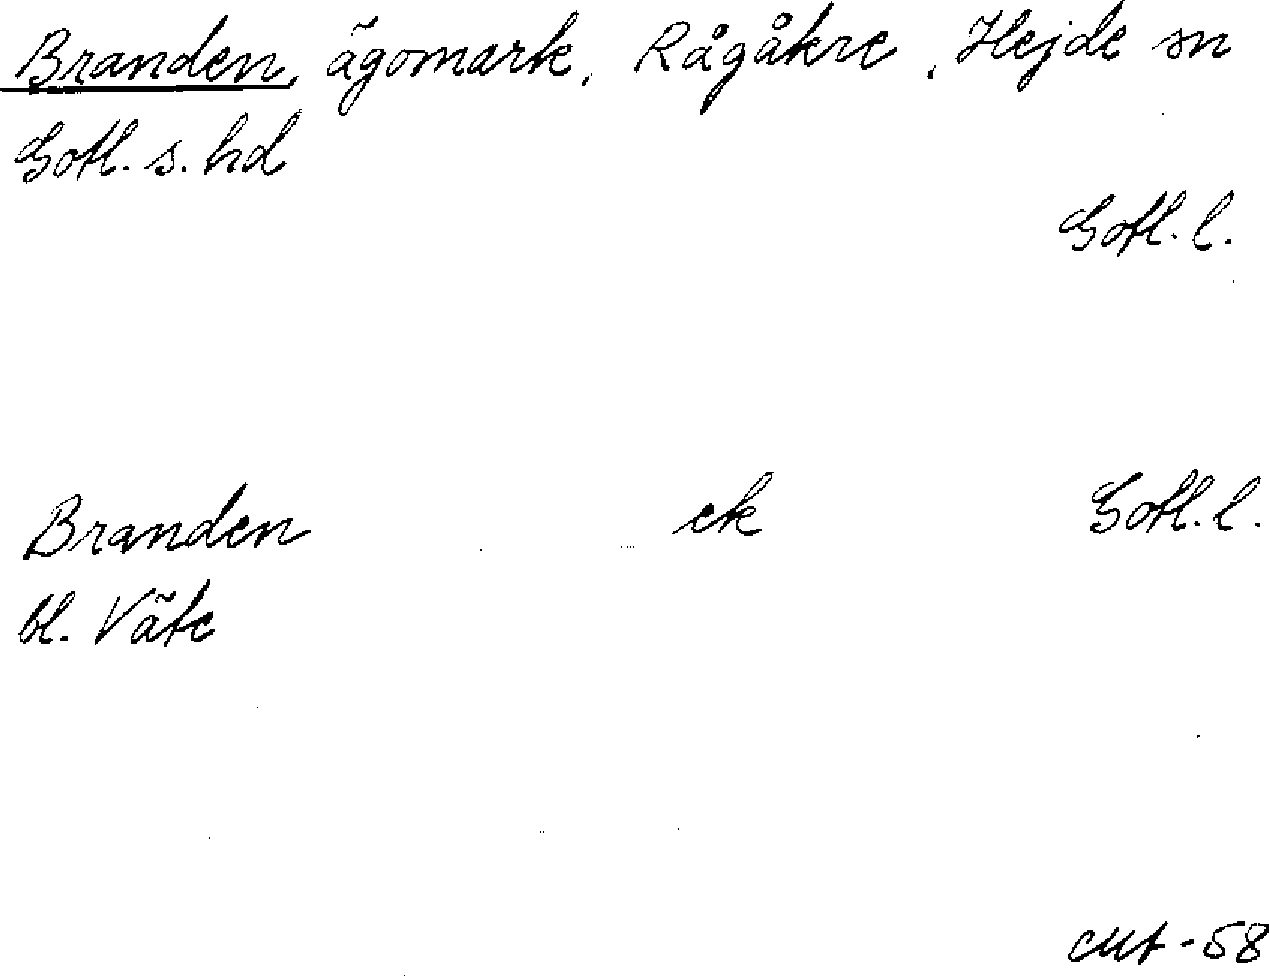 Branden, ägomark, Rågåkre, Hejde sn
Gotl. s. hd
Gotl. l.
Branden ek Gotl. l.
bl. Väte
-58